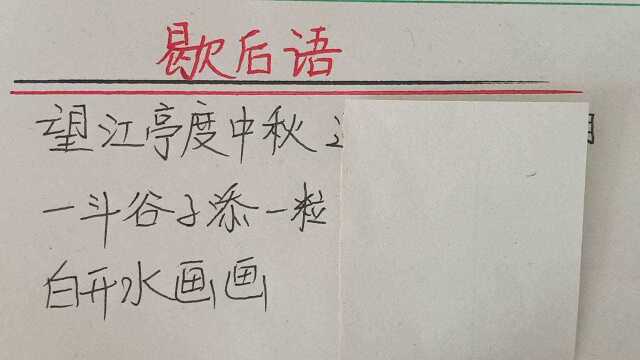 歇后语
望江亭度中秋
一斗谷子添一粒
白开水画画